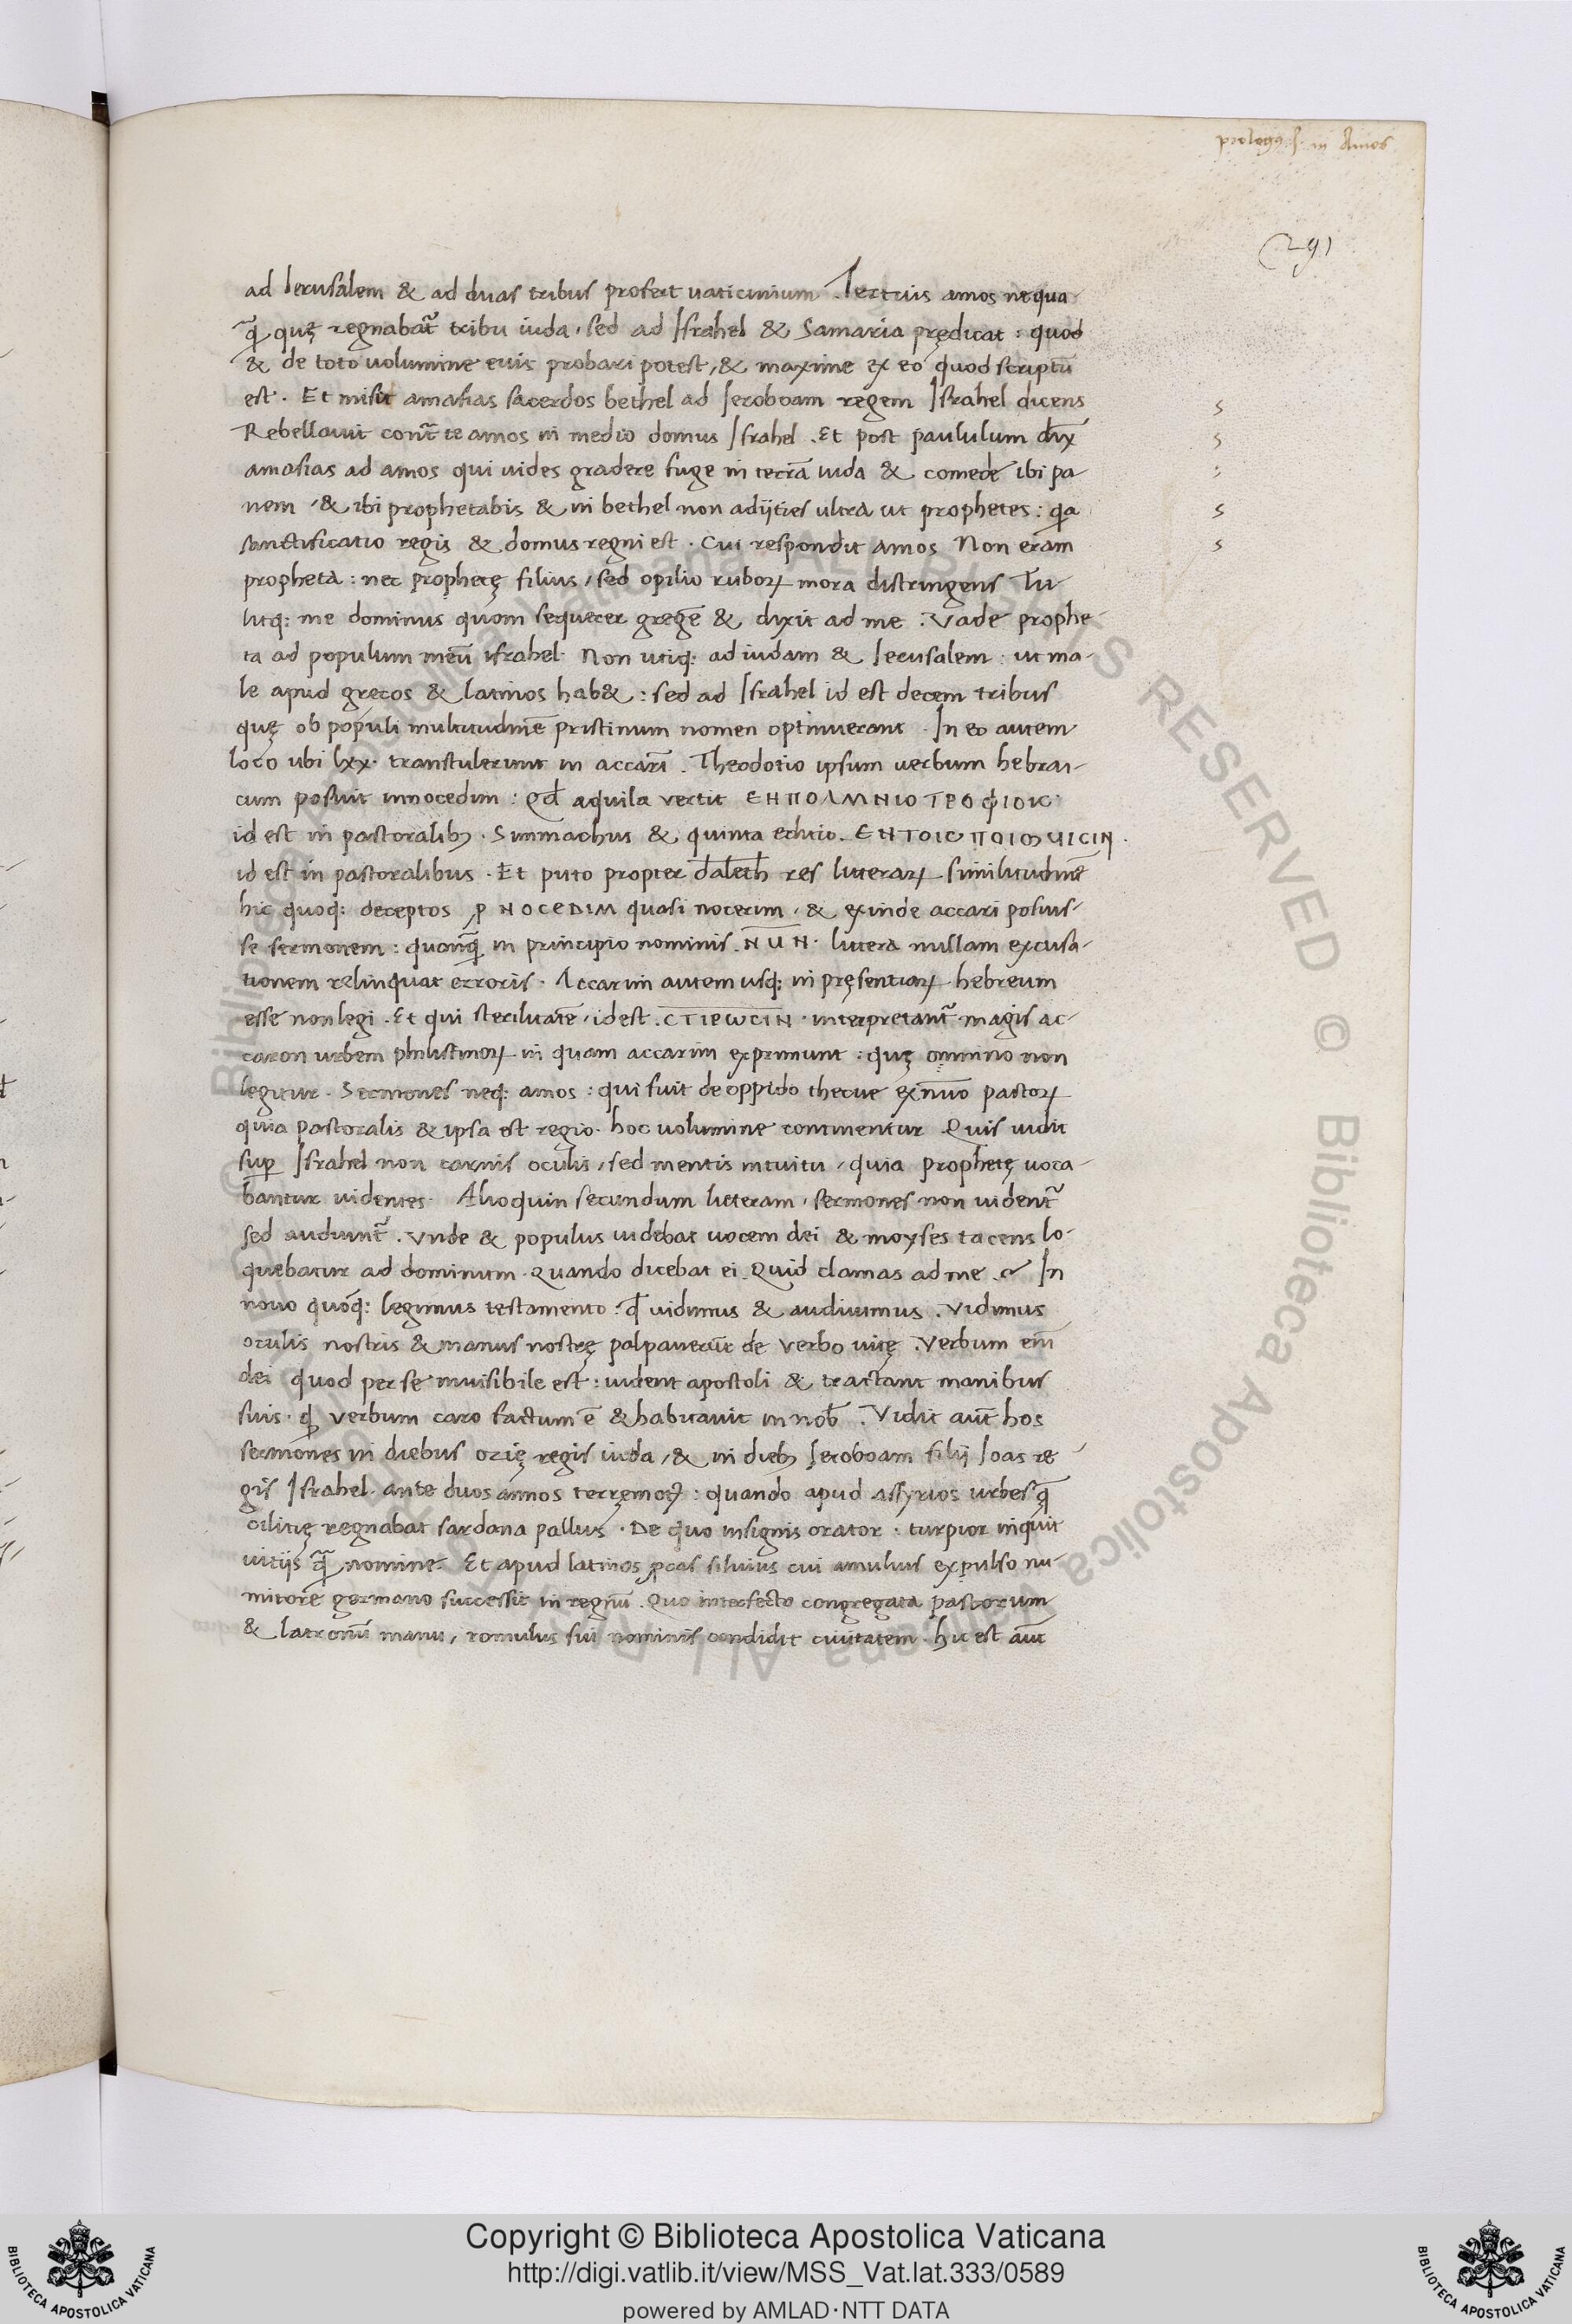 prologus s. in Amos
(291
ad Ierusalem & ad duas tribus profert uaticinium. Tertius amos nequa
ꝙ̃ quę regnabat᷑ tribu iuda, sed ad Israhel & Samaria prędicat : quod
& de toto uolumine euis probari potest, & maxime ex eo quod scriptū
est. Et misit amasias sacerdos bethel ad Ieroboam regem Israhel dicens
Rebellauit cont᷑ te amos in medio domus Israhel. Et post paululum dix̄
amasias ad amos qui uides gradere fuge in terrā iuda & comede ibi pa-
nem, & ibi prophetabis & in bethel non adijties ultra ut prophetes : qa
sanctificatio regis & domus regni est. Cui respondit amos Non eram
propheta : nec prophetę filius, sed opilio ruboꝝ mora distringens Tu
litq: me dominus quom sequerer gregē & dixit ad me. Vade prophe-
ta ad populum meū israhel. Non utiq: ad iudam & Ierusalem : ut ma-
le apud grecos & latinos hab& : sed ad Israhel id est decem tribus
quę ob populi multitudinē pristinum nomen optinuerant. In eo autem
loco ubi lxx. transtulerunt in accarī. Theodotio ipsum uerbum hebrai-
cum posuit innocedim : Qđ aquila vertit ЄΗΠΟΛΜΝΙΟΤΡΟΦΙΟΙC
id est in pastoralibꝫ. Simmachus & quinta editio. ЄΗΤΟΙCΠΟΙΜΗΙCΙΝ.
id est in pastoralibus. Et puto propter daleth res litteraꝝ similitudinē
hic quoq: deceptos ꝓ NOCEDIM quasi nocerim, & exinde accari posuis-
se sermonem : quanꝙ̃ in principio nominis. NUN. littera nullam excusa-
tionem relinquat erroris. Accarim autem usq: in pręsentiaꝝ hebreum
esse non legi. Et qui sterilitatē, id est. CΤΙΡΩCΙΝ. interpretant᷑ magis ac-
caron urbem philistinoꝝ in quam accarim exprimunt : quę omnino non
legitur. Sermones neq: amos : qui fuit de oppido thecue ex nūo pastoꝝ
quia pastoralis & ipsa est regio. hoc uolumine continentur Quis uidit
suꝑ Israhel non carnis oculis, sed mentis intuitu, quia prophetę uoca-
bantur uidentes. Alioquin secundum litteram, sermones non uident᷑
sed audiunt᷑. Vnde & populus uidebat uocem dei & moyses tacens lo-
quebatur ad dominum. Quando dicebat ei. Quid clamas ad me. In
nouo quoq: legimus testamento : qđ uidimus & audiuimus. Vidimus
oculis nostris & manus nostrę palpauerūt de verbo uitę. Verbum em̄
dei quod per se inuisibile est : uident apostoli & tractant manibus
suis. q verbum caro factum ē & habitauit in nob̄. Vidit aūt hos
sermones in diebus ozię regis iuda, & in diebꝫ Ieroboam filij Ioas re-
gis Israhel. ante duos annos terręmotꝰ : quando apud assyrios urbesq̃
cilitię regnabat sardana pallus. De quo insignis orator. turpior inquit
uitijs ꝙ̃ nomine. Et apud latinos ꝓcas siluius cui amulius expulso nu-
mitore germano successit in regnū. Quo interfecto congregata pastorum
& latronū manu, romulus sui nominis condidit ciuitatem. hic est aūt
Copyright © Biblioteca Apostolica Vaticana
http://digi.vatlib.it/view/MSS_Vat.lat.333/0589
powered by AMLAD·NTT DATA